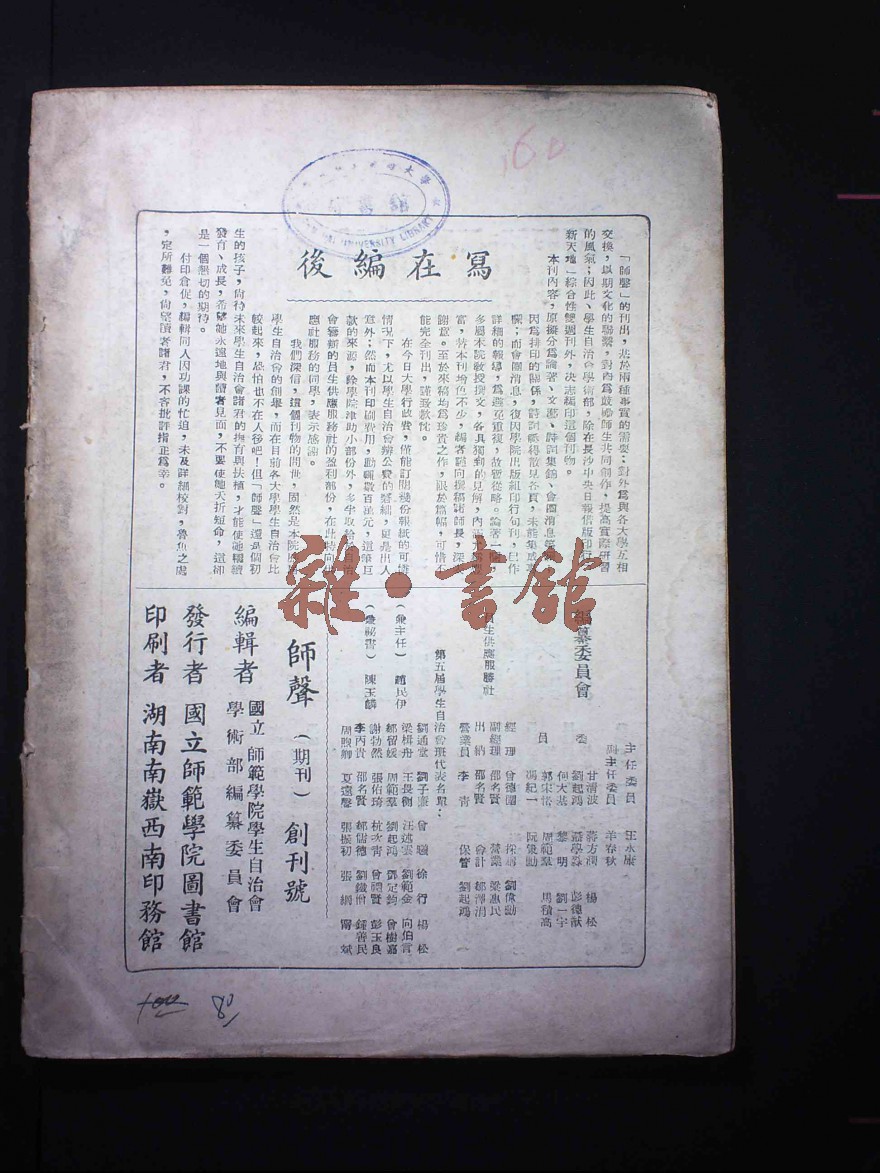 寫在編後
「師聲」的刊出，基於兩種事實的需要：對外為與各大學互相
交換，以期文化的聯繫，對內為鼓勵師生共同創作，提高實際研習
的風氣；因此、學生自治會學術部，除在長沙中央日報借版印行
新天地」綜合性雙週刊外，決志編印這個刊物。
本刊內容，原擬分為論著、文藝、詩詞集錦、會團消息等
因為排印的關係，詩詞祇得散見各頁，未能集成專
欄；而會團消息，復因學院出版組印行旬刊，已作
詳細的報導，為避免重複，故暫從略。論著一
多邀本院教授撰文，各具獨到的見解，內
富，替本刊增色不少，編者謹向撰稿諸師長，深
謝意。至於來稿均為珍貴之作，限於篇幅，可惜不
能完全刊出，謹致歉忱。
在今日大學行政費，僅能訂閱幾份報紙的可憐
情況下，尤以學生自治會辦公費的奇絀，更是出人
意外；然而本刊印刷費用，動輒數百萬元，這筆巨
款的來源，除學院津助小部份外，多半取給
會籌辦的員生供應服務社的盈利部份，在此特向
應社服務的同學，表示感謝。
我們深信，這個刊物的問世，固然是本院
學生自治會的創舉，而在目前各大學學生自治會比
較起來，恐怕也不在人後吧！但「師聲」還是個初
生的孩子，尚待未來學生自治會諸君的撫育與扶植，才能使牠繼續
發育、成長，希望牠永遠地與讀者見面，不要使牠夭折短命，這卻
是一個懇切的期待。
付印倉促，編輯同人因功課的忙迫，未及詳細校對，魯魚之處
，定所難免，尚望讀者諸君，不吝批評指正為幸。
編纂委員會
主任委員 王永康
副主任委員 羊春秋
委員
甘清波 蔣方潤 楊松
劉起鴻 彭德猷
何大基 黎明 劉一字
郭宋恪 周範羣 周積高
馮紀一
員生供應服務社
經理 曾德園 採購 劉偉勳
副經理 邵名賢 營業 梁惠民
出納 邵名賢 會計 鄒澤涓
營業員 李青 保管 劉起鴻
第五屆學生自治會班代表名單：
劉適堂 劉子廉 曾 徐行 楊松
梁楫舟 王長衡 汪述雲 劉範金 向伯言
鄒留媛 周範羣 劉起鴻 鄧定鈞 曾樹嘉
謝勃然 張佑琦 杭次青 曾禮賢 彭玉良
李丙貴 邵名賢 鄒儒德 劉鐵僧 鍾善民
周煦卿 夏遠聲 張振初 張綱 甯斌
（兼主任） 趙民伊
（兼祕書） 陳玉麟
師聲（期刊）創刊號
編輯者 國立師範學院學生自治會
學術部編纂委員會
發行者 國立師範學院圖書館
印刷者 湖南南嶽西南印務館
UNIVERSITY LIBRARY
雜·書館
160
80